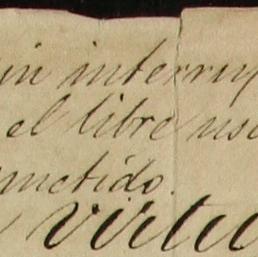 in interrup
el libre uso
metido.
Virtu